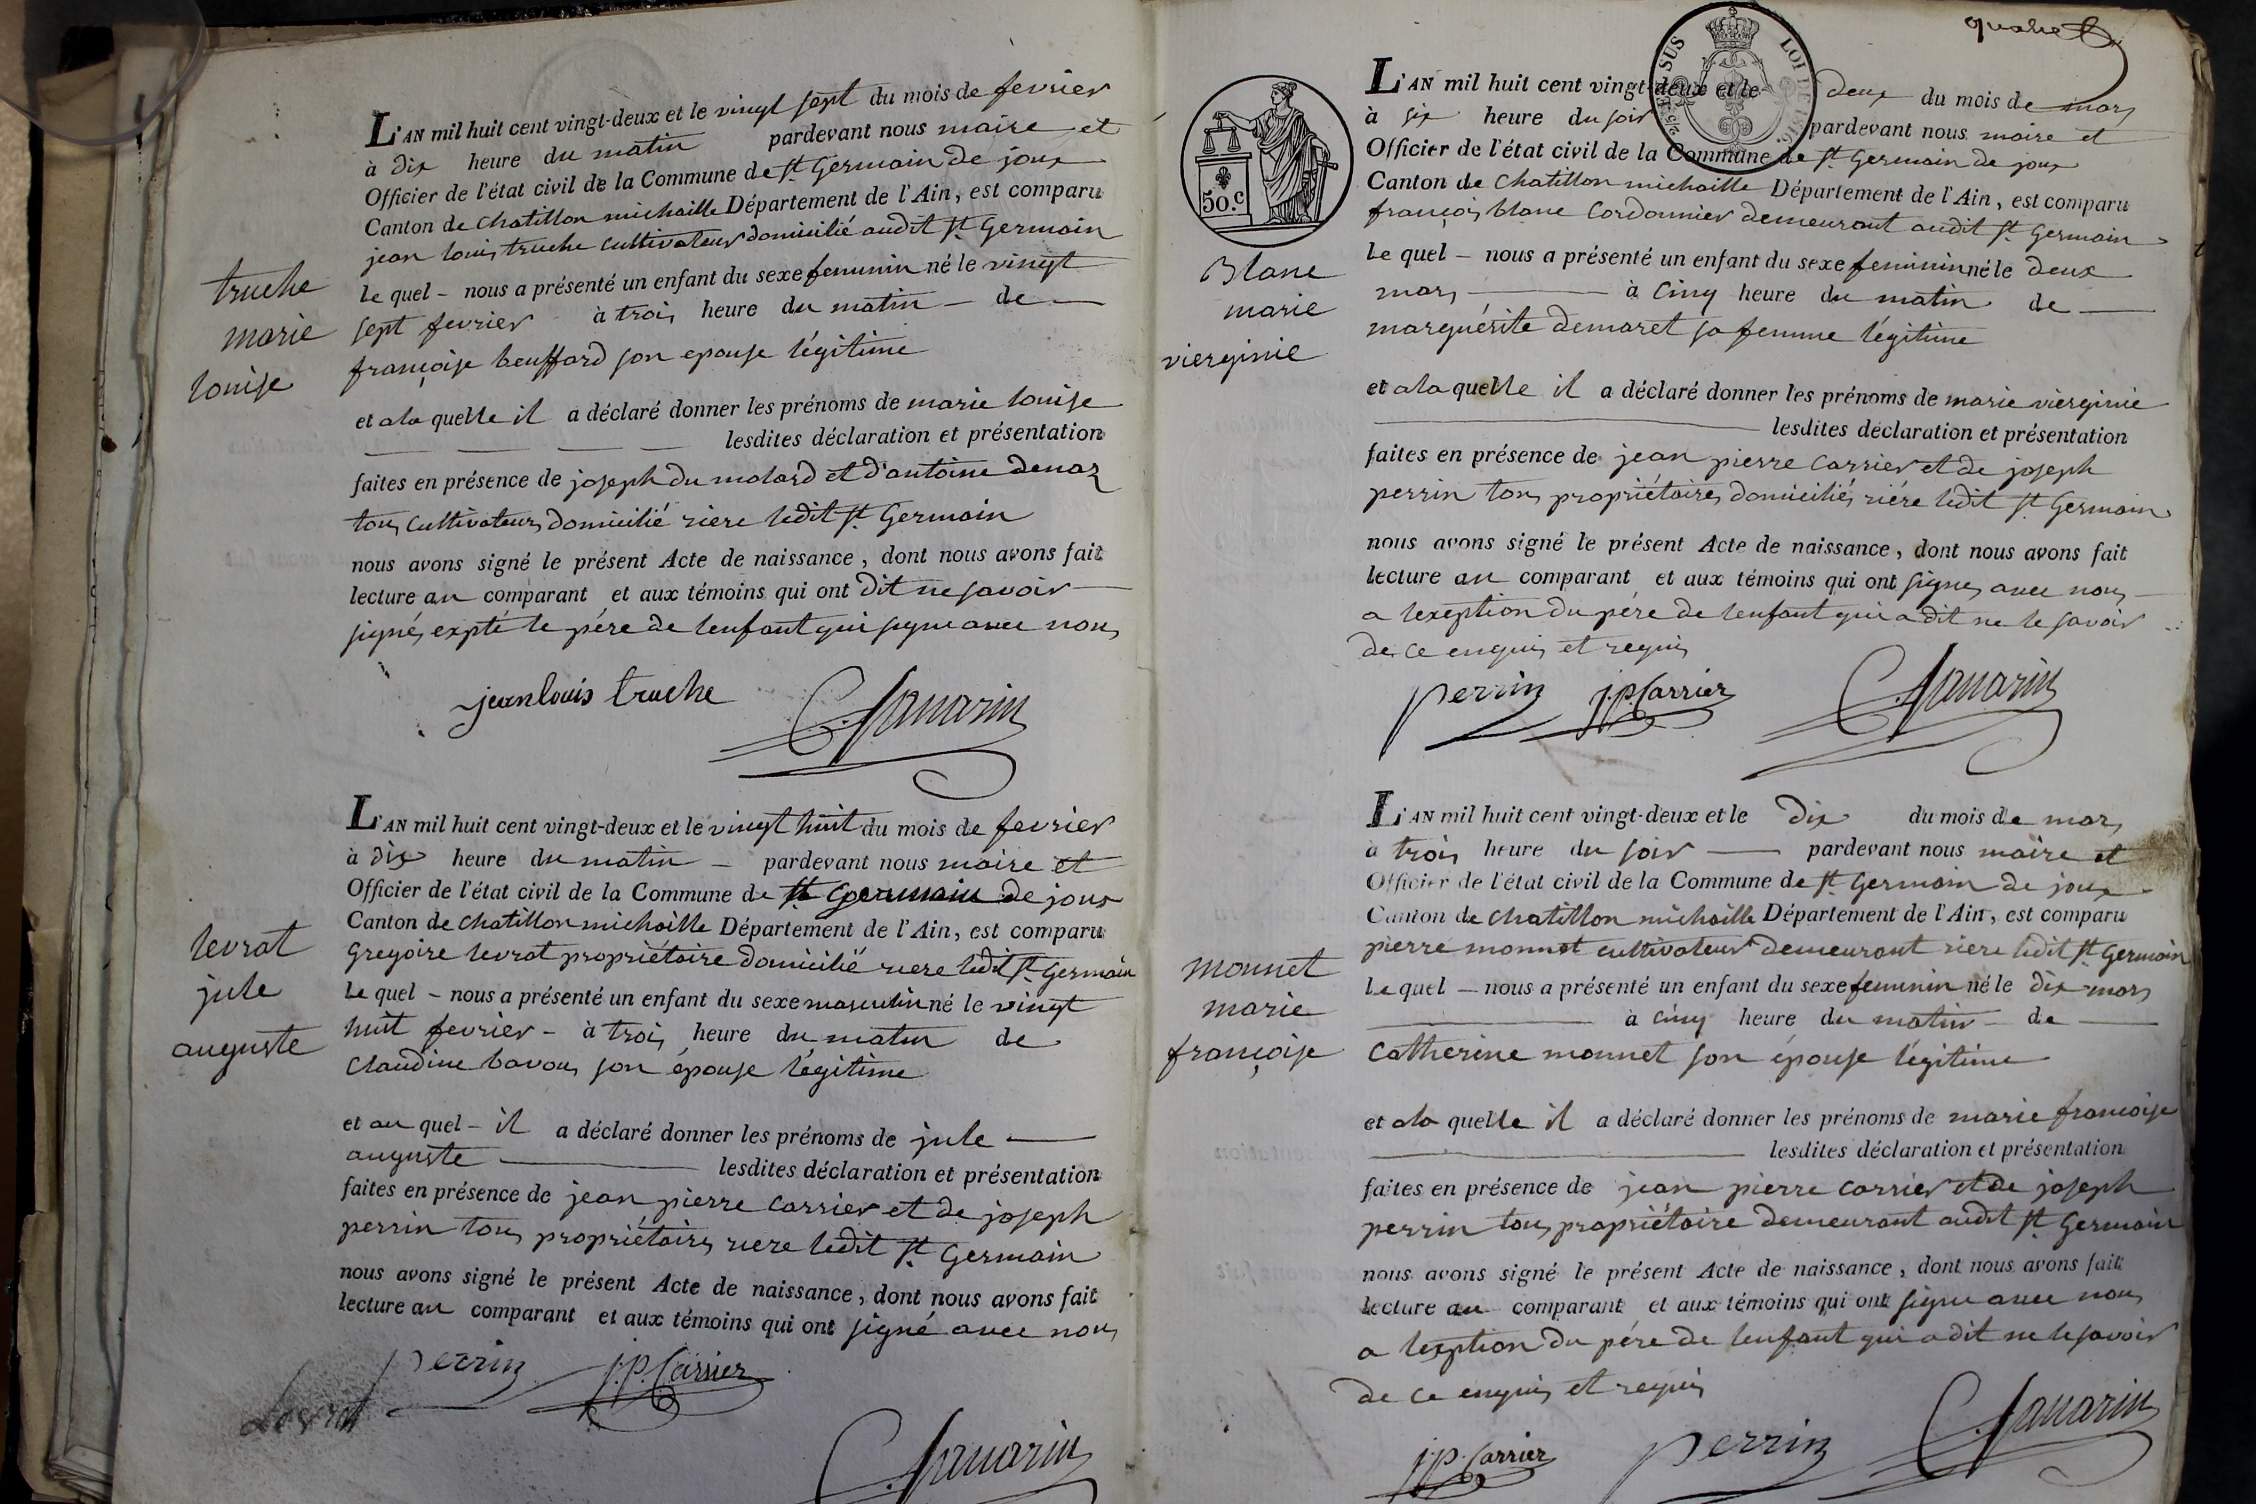 L'AN mil huit cent vingt-deux et le vingt sept du mois de fevrier
à dix heure du matin pardevant nous maire et
Officier de l'état civil de la Commune de St. Germain de joux
Canton de chatillon michaille Département de l'Ain, est comparu
jean louis truche cultivateur domicilié audit St. Germain
truche
marie
louise
le quel - nous a présenté un enfant du sexe feminin né le vingt
sept fevrier à trois heure du matin - de -
françoise beuffard son epouse légitime
et a la quelle il a déclaré donner les prénoms de marie louise
lesdites déclaration et présentation
faites en présence de joseph du molard et d'antoine denaz
tous cultivateurs domicilié riere ledit St. Germain
nous avons signé le présent Acte de naissance, dont nous avons fait
lecture au comparant et aux témoins qui ont dit ne savoir
signés expté le pére de lenfant qui signe avec nous
jean louis truche
L'AN mil huit cent vingt-deux et le vingt huit du mois de fevrier
à dix heure du matin - pardevant nous maire et
Officier de l'état civil de la Commune de St Germain de joux
Canton de chatillon michaille Département de l'Ain, est comparu
gregoire levrat propriétaire domicilié riere ledit St. Germain
levrat
jule
auguste
le quel - nous a présenté un enfant du sexe masculin né le vingt
huit fevrier - à trois heure du matin de
claudine bavoux son épouse légitime
et au quel - il a déclaré donner les prénoms de jule
auguste lesdites déclaration et présentation
faites en présence de jean pierre carrier et de joseph
perrin tous propriétaires riere ledit St. Germain
nous avons signé le présent Acte de naissance, dont nous avons fait
lecture au comparant et aux témoins qui ont signé avec nous
Perrin J.P. Carrier
Levrat
quatre
SUS LOI DE 1816
50.c
L'AN mil huit cent vingt-deux et le deux du mois de mars
à six heure du soir pardevant nous maire et
Officier de l'état civil de la Commune de St. Germain de joux
Canton de chatillon michaille Département de l'Ain, est comparu
françois blanc cordonnier demeurant audit St. Germain
Blanc
marie
vierginie
le quel - nous a présenté un enfant du sexe feminin né le deux
mars à cinq heure du matin de
marguérite demaret sa femme légitime
et a la quelle il a déclaré donner les prénoms de marie vierginie
lesdites déclaration et présentation
faites en présence de jean pierre carrier et de joseph
perrin tous propriétaires domiciliés riére ledit St. Germain
nous avons signé le présent Acte de naissance, dont nous avons fait
lecture au comparant et aux témoins qui ont signes avec nous
a lexeption du pére de lenfant qui a dit ne le savoir
de ce enquis et requis
Perrin J.P. Carrier
L'AN mil huit cent vingt-deux et le dix du mois de mars
à trois heure du soir pardevant nous maire et
Officier de l'état civil de la Commune de St. Germain de joux
Canton de chatillon michaille Département de l'Ain, est comparu
pierre monnet cultivateur demeurant riere ledit St. Germain
monnet
marie
françoise
le quel - nous a présenté un enfant du sexe feminin né le dix mars
à cinq heure du matin - de
catherine monnet son épouse légitime
et a la quelle il a déclaré donner les prénoms de marie françoise
lesdites déclaration et présentation
faites en présence de jean pierre carrier et de joseph
perrin tous propriétaire demeurant audit St. Germain
nous avons signé le présent Acte de naissance, dont nous avons fait
lecture au comparant et aux témoins qui ont signe avec nous
a lexption du pére de lenfant qui a dit ne le savoir
de ce enquis et requis
J.P. Carrier Perrin